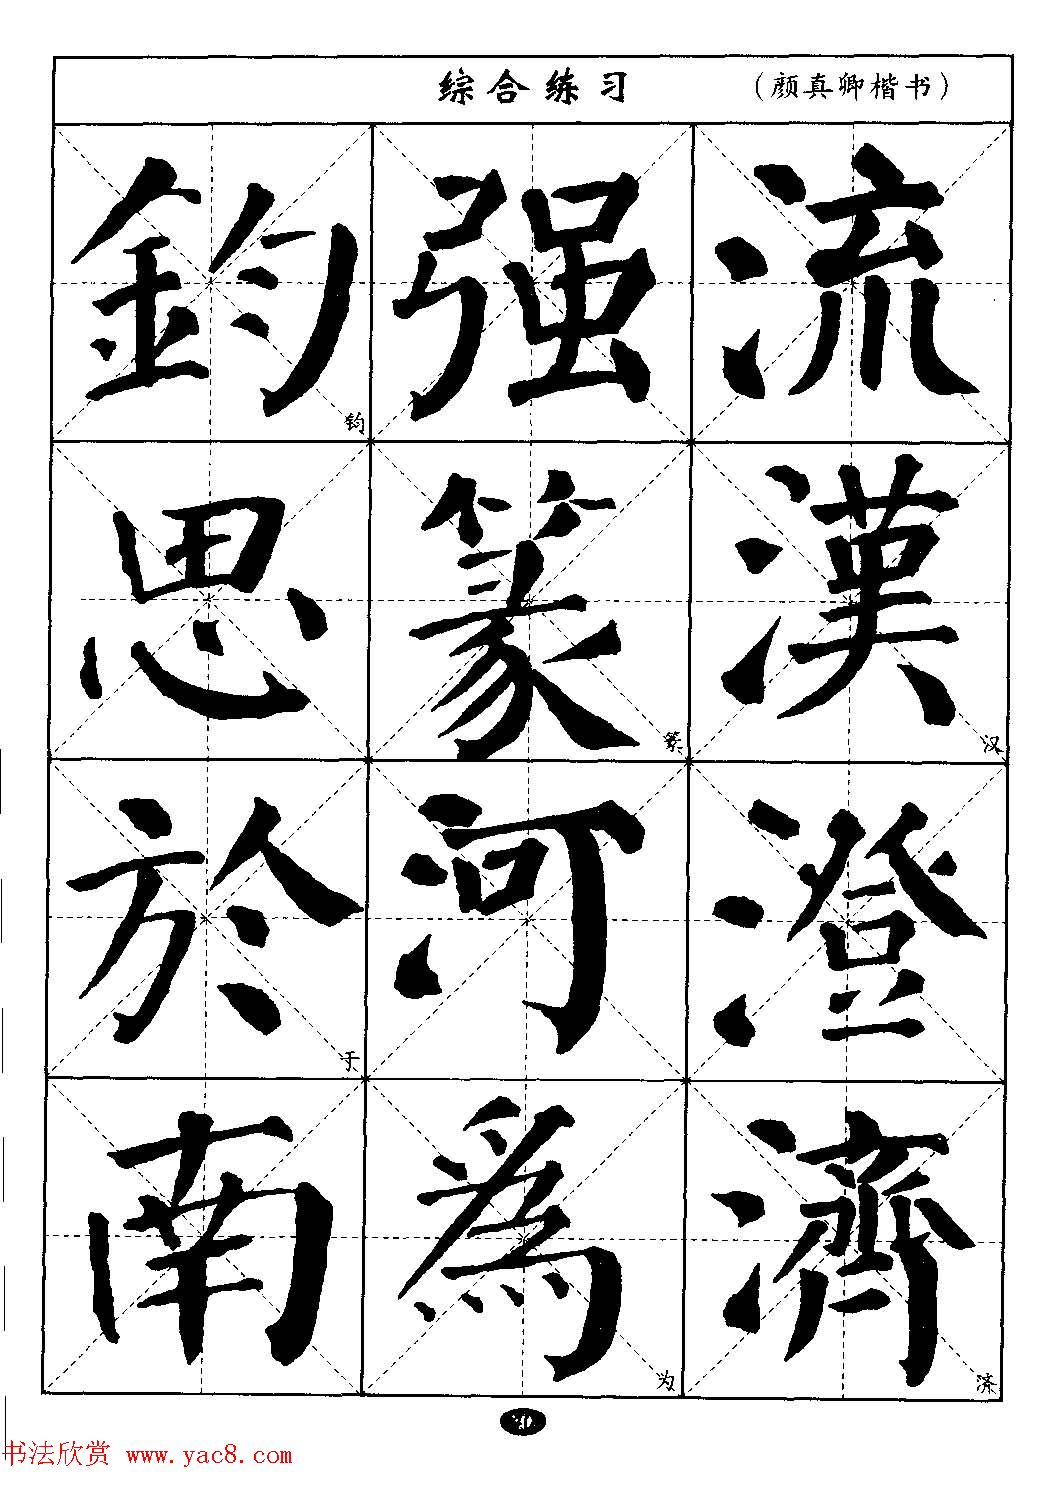 综合练习 （颜真卿楷书）
鈞 钧 强 流
思 篆 篆 漢 汉
於 于 河 澄
南 為 为 濟 济
书法欣赏 www.yac8.com